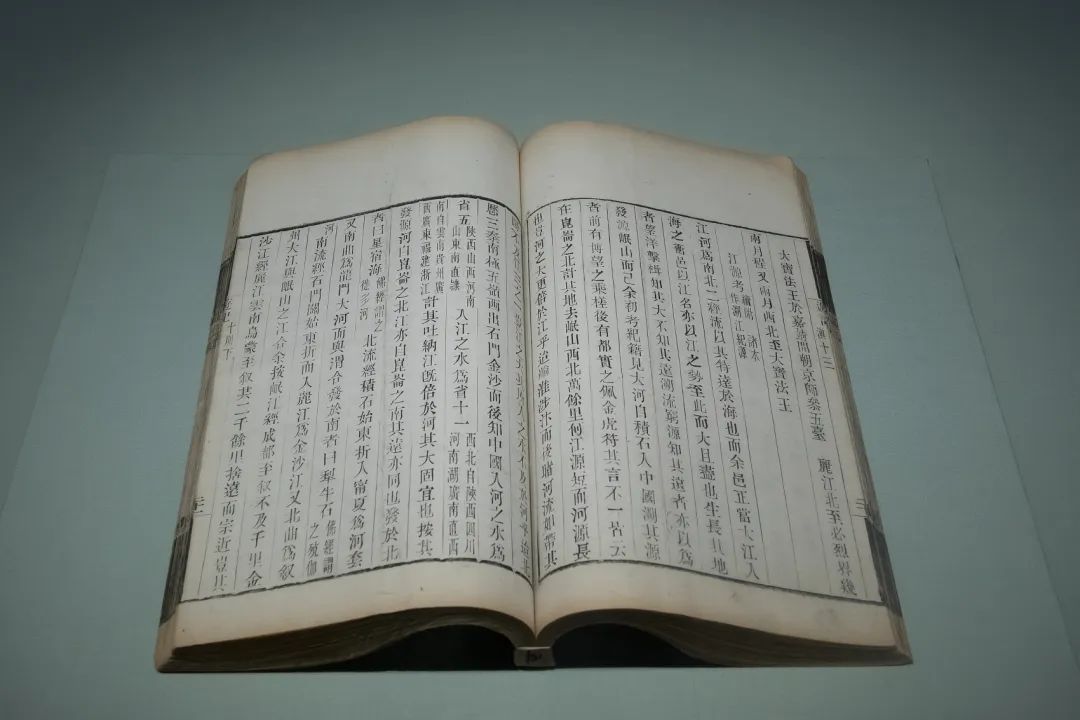 大寶法王於嘉靖間朝京師參五臺　麗江北至必烈界幾
兩月程又兩月西北至大寶法王
江源考 諸本作溯江紀源
江河爲南北二經流以其特達於海也而余邑正當大江入
海之衝邑以江名亦以江之勢至此而大且盡也生長其地
者望洋擊楫知其大不知其遠溯流窮源知其遠者亦以爲
發源岷山而已余初考紀籍見大河自積石入中國溯其源
者前有博望之乘槎後有都實之佩金虎符其言不一皆云
在崑崙之北計其地去岷山西北萬餘里何江源短而河源長
也豈河之大更倍於江乎迨踰淮涉汴而後睹河流如帶其
歷三秦南極五嶺西出石門金沙而後知中國入河之水爲
省五 陝西山西河南山東南直隸 入江之水爲省十一 西北自陝西四川河南湖廣南直西
南自雲南貴州廣西廣東福建浙江 計其吐納江既倍於河其大固宜也按其
發源河自崑崙之北江亦自崑崙之南其遠亦同也發於北
者曰星宿海 佛經謂之徙多河 北流經積石始東折入甯夏爲河套
又南曲爲龍門大河而與渭合發於南者曰犁牛石 佛經謂之殑伽
河 南流經石門關始東折而入麗江爲金沙江又北曲爲敘
州大江與岷山之江合余按岷江經成都至敘不及千里金
沙江經麗江雲南烏蒙至敘共二千餘里捨遠而宗近豈其